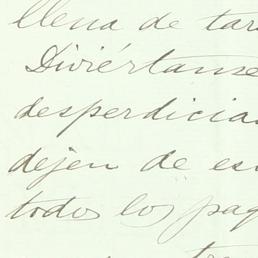 llena de tar
Diviértanse
desperdician
dejen de es
todos los paq